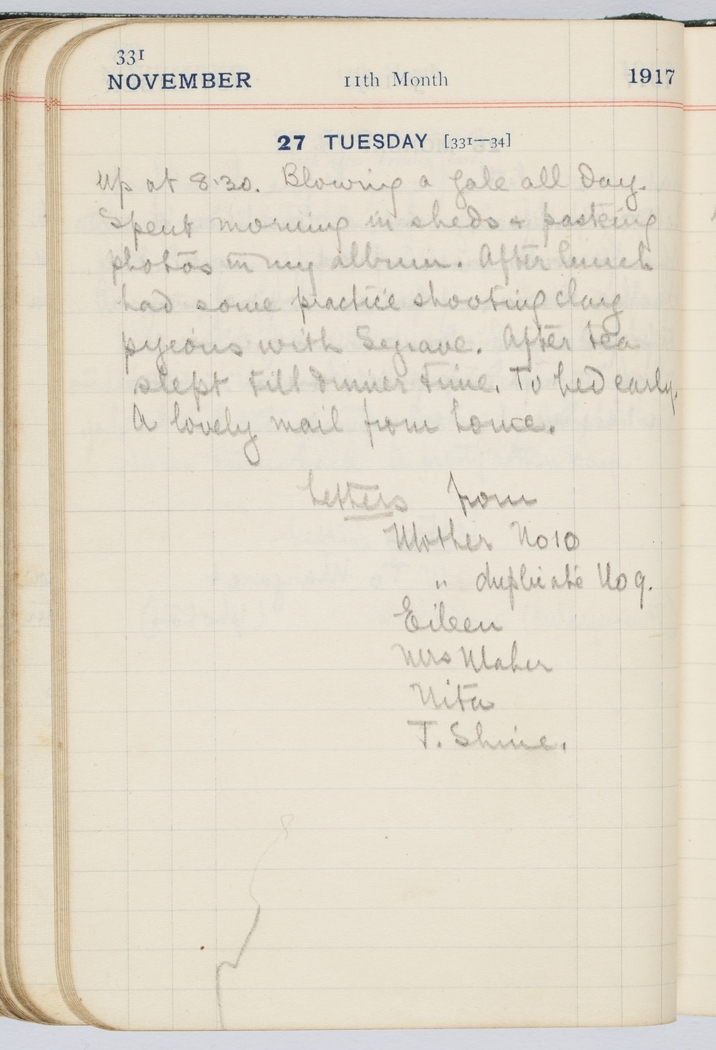 331
NOVEMBER 11th Month 1917
27 TUESDAY [331—34]
Up at 8.30. Blowing a gale all day.
Spent morning in sheds + pasting
photos in my album. After lunch
had some practice shooting clay
pygeons with Segrave. After tea
slept till dinner time. To bed early.
A lovely mail from home.
Letters from
Mother No 10
" duplicate No 9.
Eileen
Mrs Maher
Nita
T. Shine.